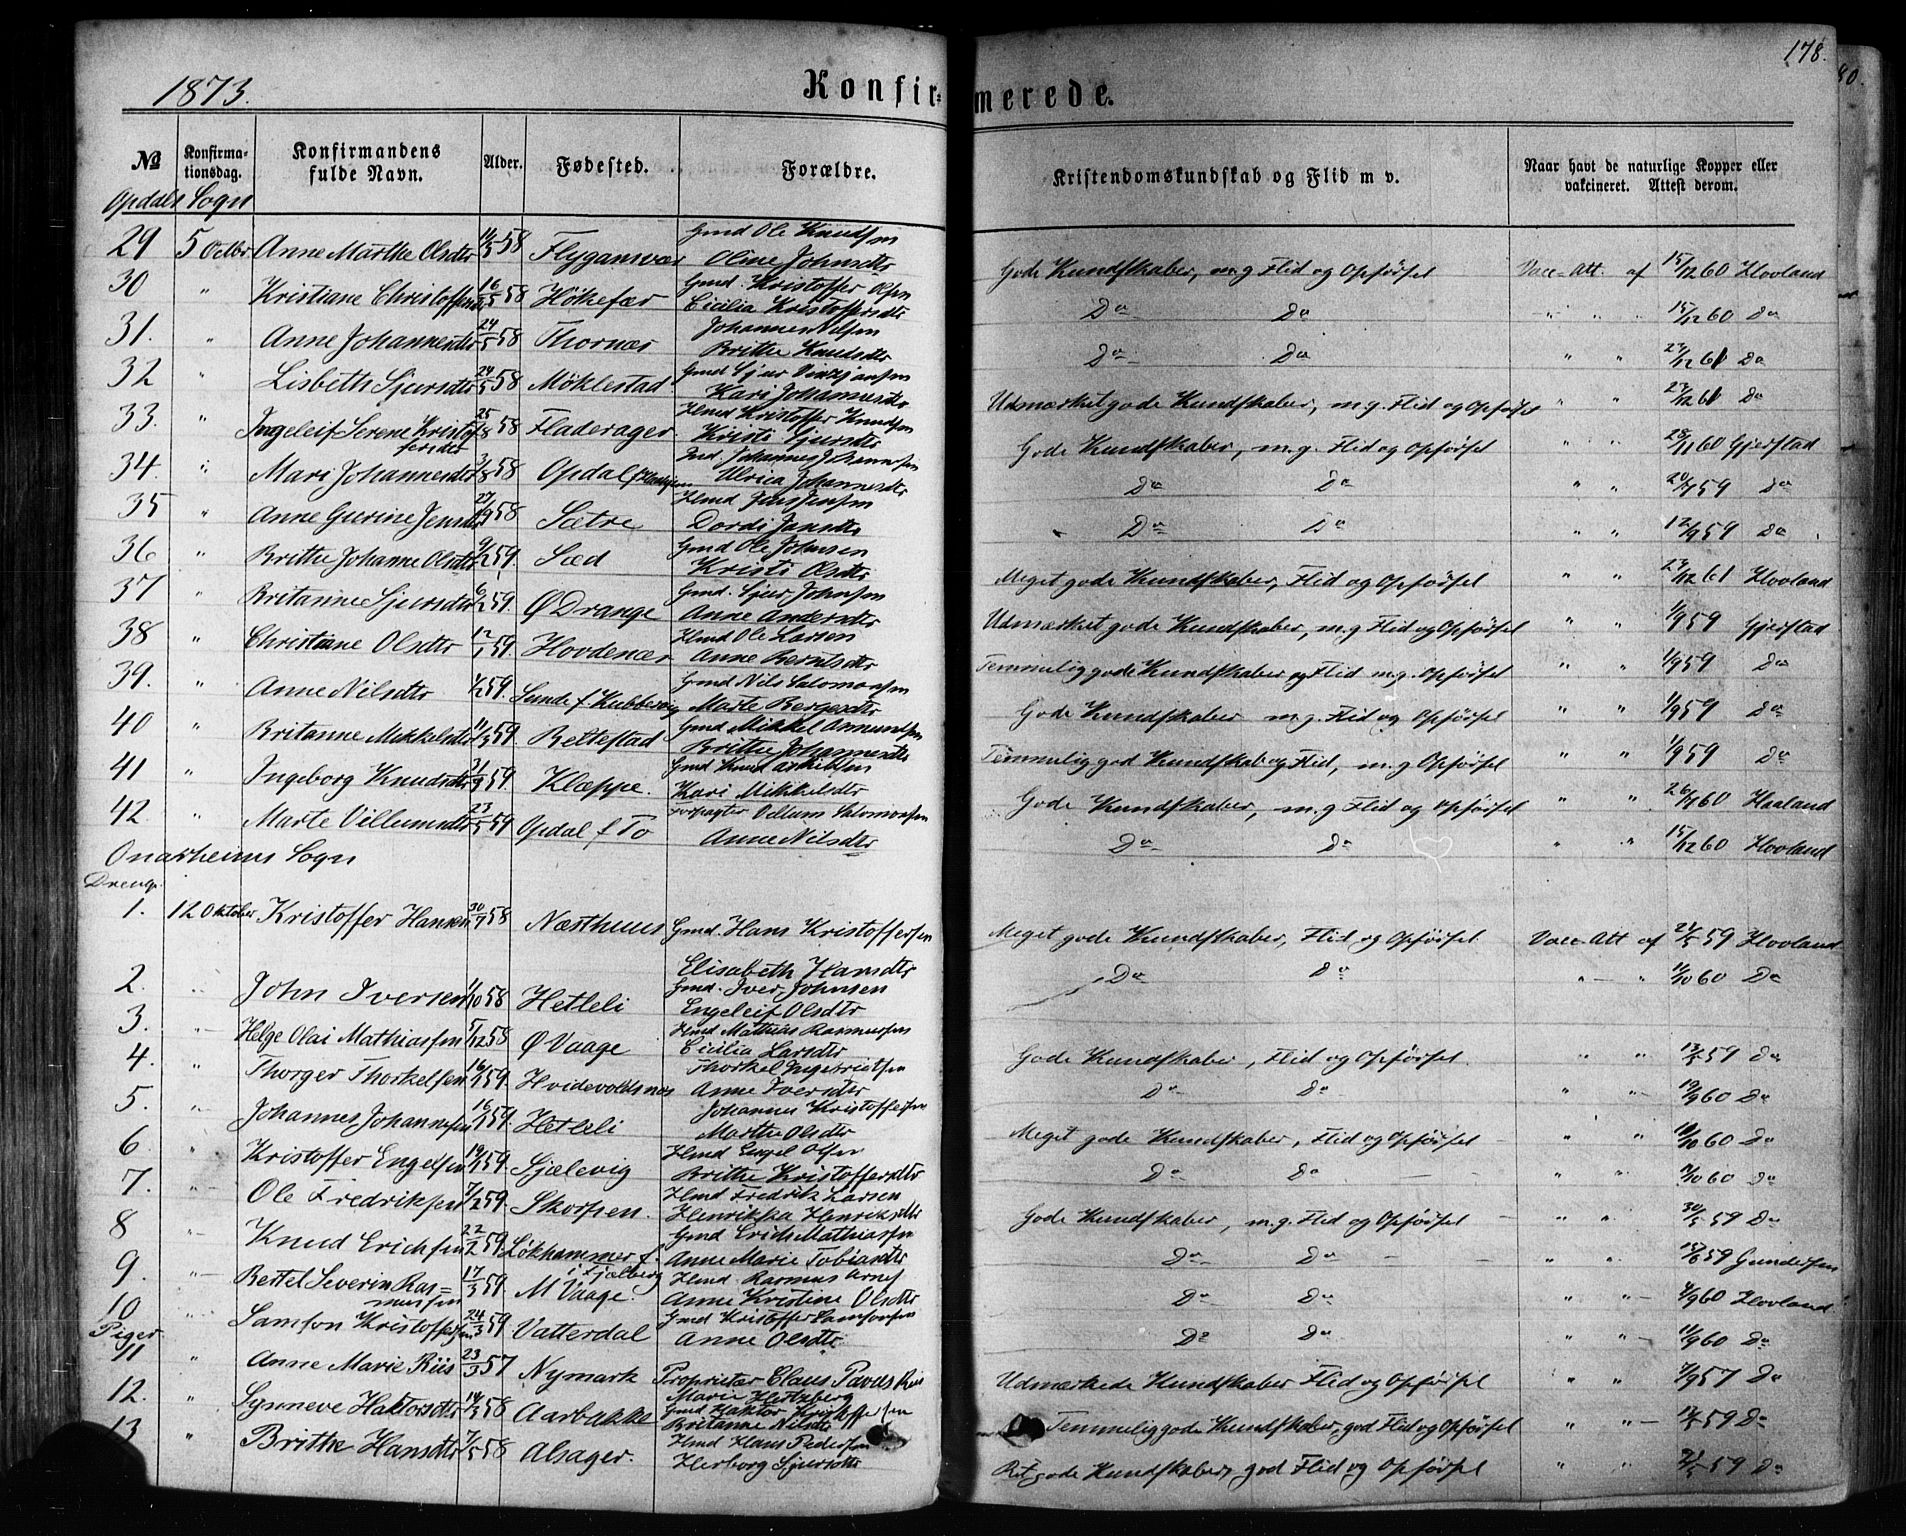 1873.
Konfirmerede.
178.
80.
№
Konfirmationsdag.
Konfirmandens fulde Navn.
Alder.
Fødested.
Forældre.
Kristendomskundskab og Flid m v.
Naar havt de naturlige Kopper eller vakcineret. Attest derom.
Opdals Sogn
29 5 Octbr Anne Marthe Olsdtr 58 Flygansvær Gmd Ole Knudsen Oline Johnsdtr Gode Kundskaber, m.g. Flid og Opførsel Vacc. Att. af 15/12 60 Hovland
30 " Kristiane 16/5 58 Høkefær Gmd. Kristoffer Olsen Cicilia Kristoffersdtr Do Do " " 15/12 60 Do
31. " Anne Johannesdtr 24/5 58 Thornæs Johannes Nilsen Britha Knudsdtr Do Do " " 23/12 61 Do
32 " Lisbeth Sjursdtr 24/5 58 Møklestad Gmd Sjur Kari Johannesdtr Udmærket gode Kundskaber, m.g. Flid og Opførsel " " 23/12 61 Do
33. " Ingeleif Serene Kristoffersdtr 25/8 58 Fladerager Hmd Kristoffer Knudsen Kristi Sjursdtr Gode Kundskaber, m.g. Flid og Opførsel " " 28/11 60 Gjerstad
34. " Mari Johannesdtr 58 Opdal Ulrica Johannesdtr Do Do " " 59 Do
35 " Anne Gurine Jensdtr 27/9 58 Sætre Hmd Jens Jensen Dordi Jansdtr Do Do " " 12/9 59 Do
36 " Brithe Johanne Olsdtr 9/2 59. Sæd Gmd Ole Johnsen Kristi Olsdtr Meget gode Kundskaber, Flid og Opførsel " " 23/12 61 Hovland
37 " Britanne Sjursdtr 6/2 59. Ø Drange Gmd. Sjur Johnsen Anne Andersdtr Udmærket gode Kundskaber, m.g Flid og Opførsel " " 1/9 59 Gjerstad
38 " Christiane Olsdtr 59. Hovdenær Hmd Ole Larsen Anne Berntsdtr Temmelig gode Kundskaber og Flid m.g. Opførsel " " 1/9 59 Do
39. " Anne Nilsdtr 1/2 59. Sunde f. Kubbervig Gmd Nils Salomonsen Marte Bergesdtr Gode Kundskaber m.g. Flid og Opførsel " " 1/9 59 Do
40 " Britanne Mikkelsdtr 11/3 59. Rettestad Gmd Mikkel Brithe Johannesdtr Temmelig god Kundskab og Flid, m.g Opførsel " " 1/9 59 Do
41 " Ingeborg Knudsdtr 59. Klæppe. Gmd Knud Kari Mikkelsdtr Gode Kundskaber, m.g Flid og Opførsel " " 60 Haaland
42. " Marte Villumsdtr 23/5 59 Opdal f To Villum Salomonsen Anne Nilsdtr Do Do " " 15/12 60 Hovland
Onarheims Sogn
Drenge.
1. 12 Oktober Kristoffer Hansen 30/7 58 Næsthuus Gmd. Hans Kristoffersen Elisabeth Hansdtr Meget gode Kundskaber, Flid og Opførsel Vacc Att af 59 Hovland
2. " John Iversen 1/10 58 Hetleli Gmd. Iver Johnsen Engeleif Olsdtr Do Do " " 11/10 60 Do
3. " Helge Olai Mathiassen 5/12 58 Ø Vaage Hmd Mathias Rasmussen Cicilia Larsdtr Gode Kundskaber, Flid og Opførsel " " 59 Do
4. " Thorger Thorkelsen 16/1 59. Hvidevoldsnæs Thorkel Anne Iversdtr Do Do " " 60 Do
5. " Johannes Johannesen 16/1 59. Hetleli Johannes Kristoffersen Marthe Olsdtr Meget gode Kundskaber, Flid og Opførsel " " 60 Do
6 " Kristoffer Engelsen 19/1 59. Sjælevig Hmd Engel Olsen Brithe Kristoffersdtr Do Do " " 60 Do
7. " Ole Fredriksen 7/2 59. Skorpen. Hmd Fredrik Larsen Henrikka Henriksdtr Gode Kundskaber, m.g. Flid og Opførsel " " 30/5 59 Do
8 " Knud Erichsen 22/2 59 Løkhammer f. i Fjelberg Gmd Erich Mathiassen Anne Marie Tobiasdtr Do Do " " 59 Gundersen
9. " Bertel Severin Rasmussen 17/3 59. M Vaage. Hmd. Rasmus Anne Kristine Olsdtr Do Do " " 60 Hovland
10 " Samson Kristoffersen 24/3 59 Vatterdal Gmd Kristoffer Samsonsen Anne Olsdtr Do Do " " 11/9 60 Do
Piger
11 " Anne Marie Riis 23/3 57 Nymark Proprietær Claus Pavels Riis Marie Hertzberg Udmærkede Kundskaber Flid og Opførsel " " 57 Do
12. " Synneve Haktorsdtr 14/3 58 Aarbakke Gmd Haktor Britanne Nilsdtr Temmelig gode Kundskaber, god Flid og Opførsel " " 59 Do
13 " Brithe Hansdtr 7/5 58 Alsager. Hmd Hans Pedersen Herborg Sjursdtr Ret gode Kundskaber, god Flid og Opførsel " " 59 Do